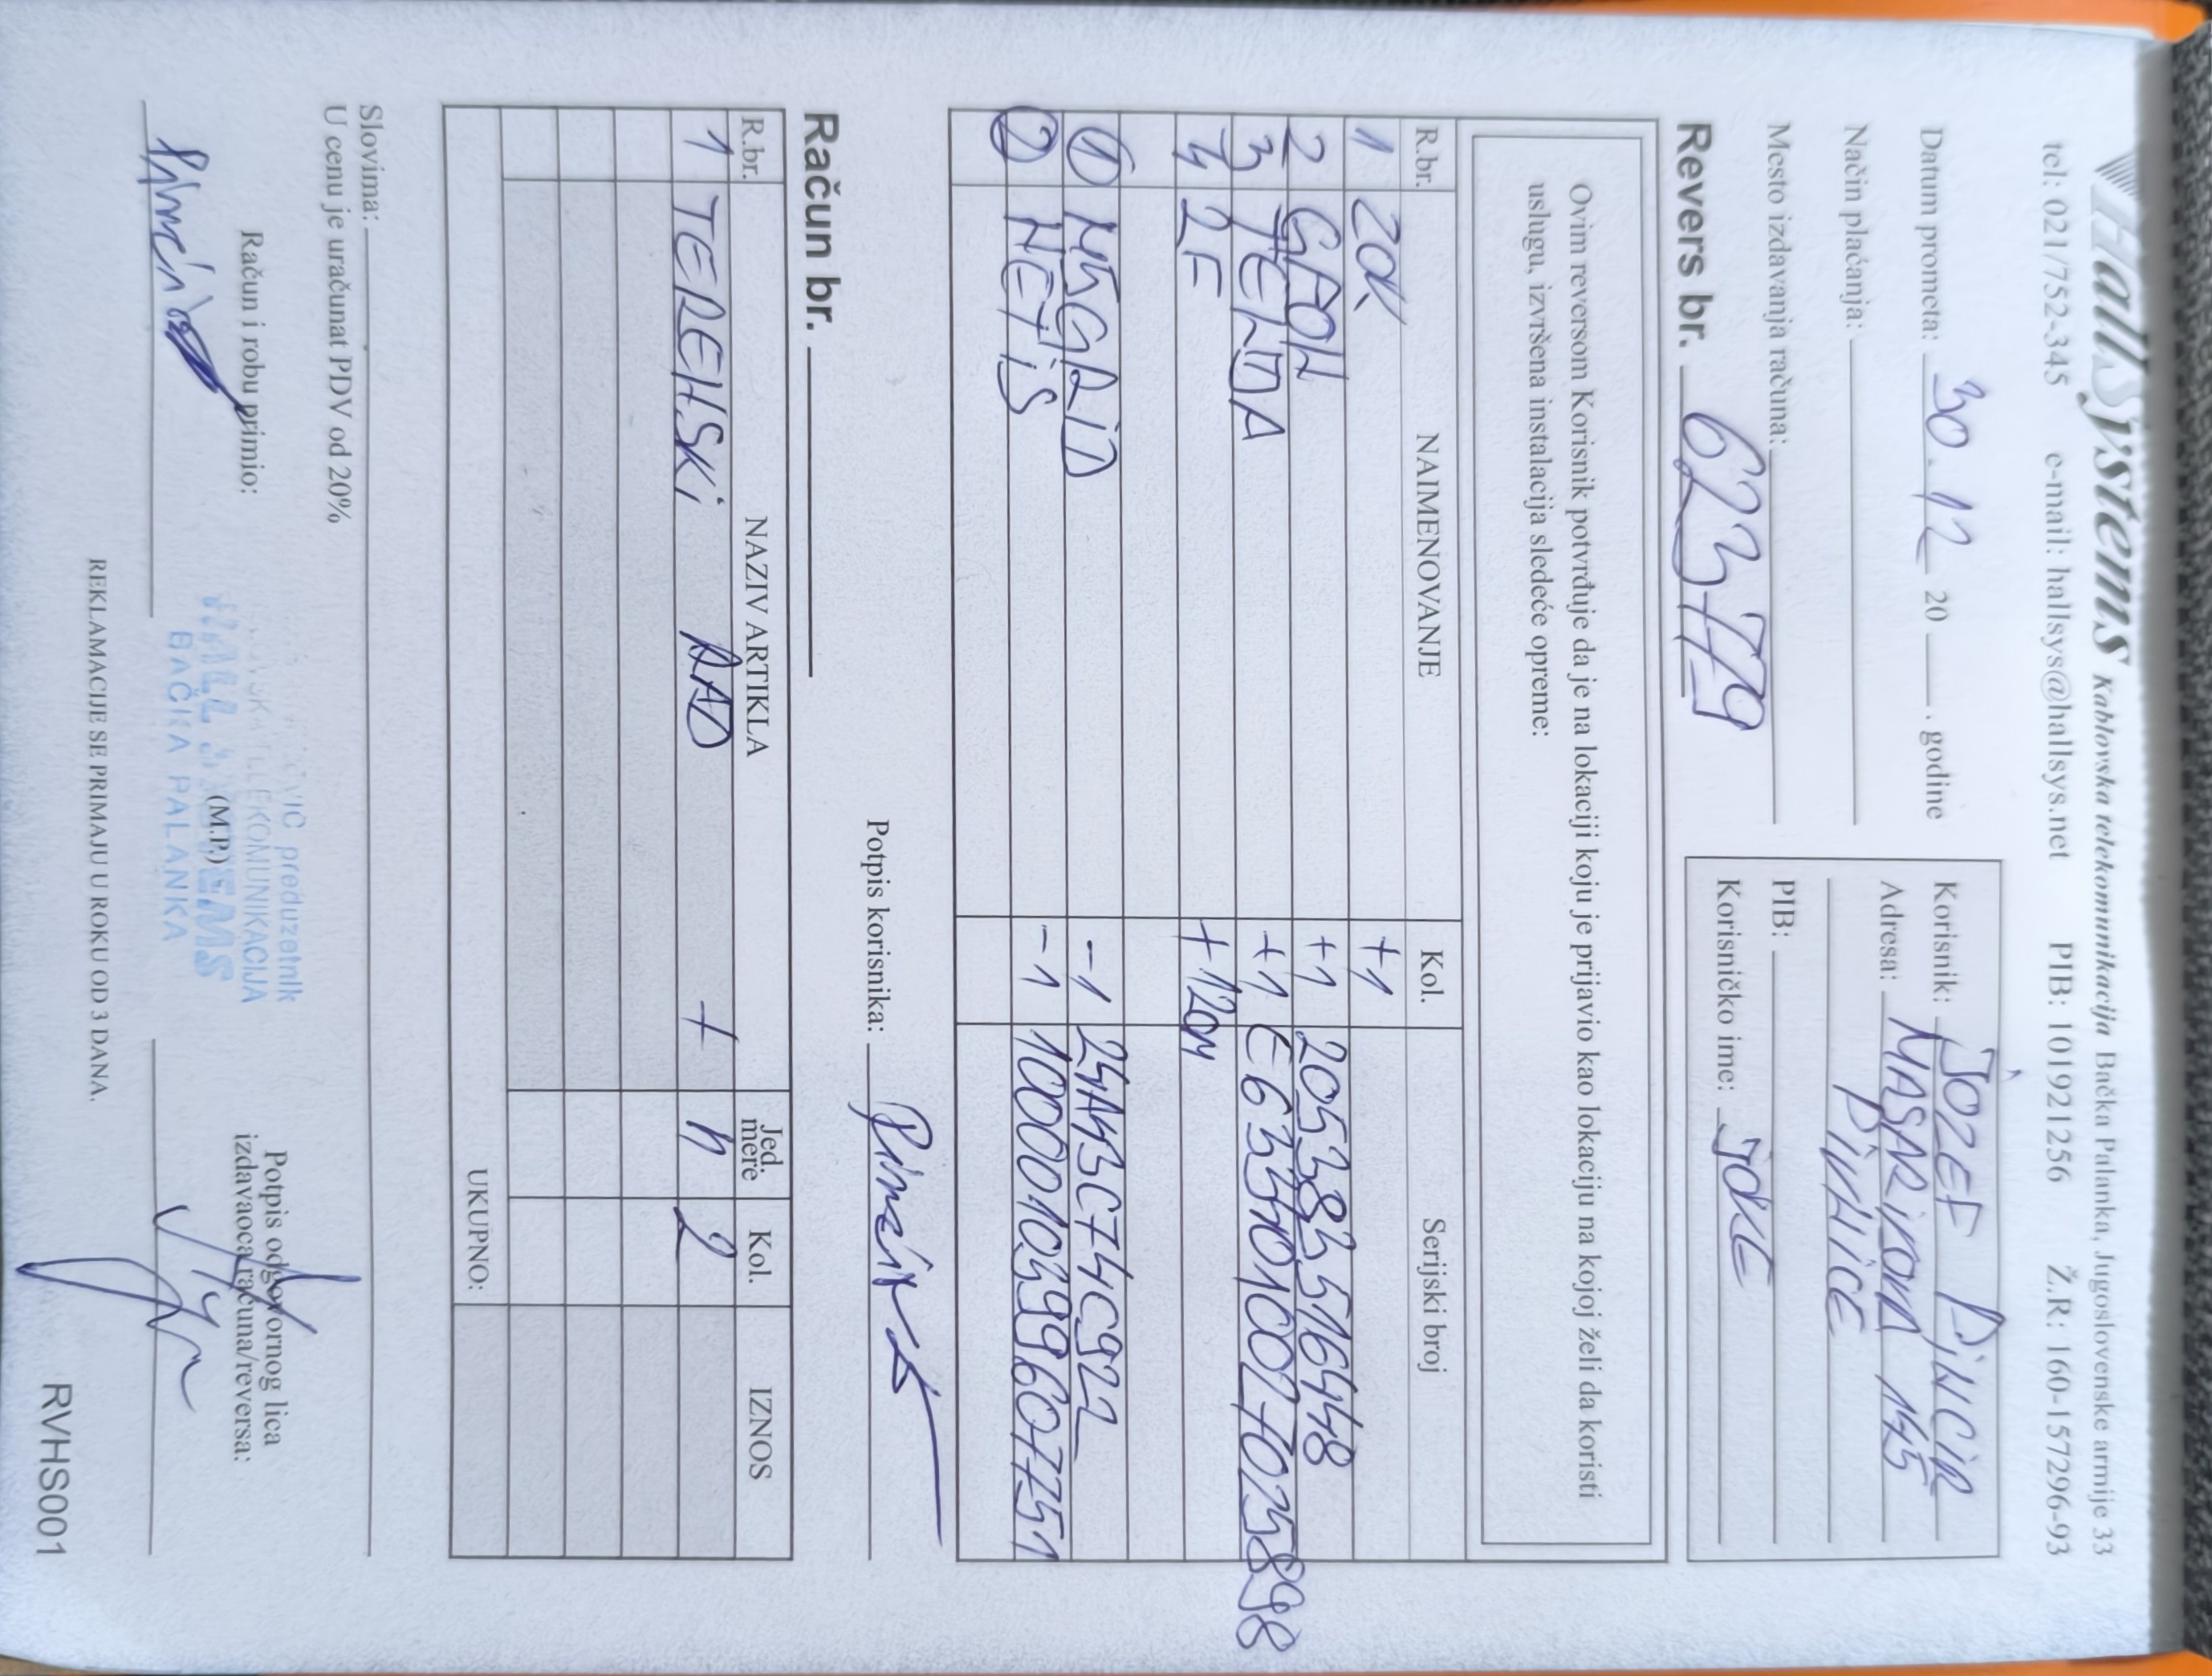 HallSystems Kablovska telekomunikacija Bačka Palanka, Jugoslovenske armije 33
tel: 021/752-345 e-mail: hallsys@hallsys.net PIB: 101921256 Ž.R: 160-157296-93
Datum prometa: 30.12 20 ____. godine
Način plaćanja:
Mesto izdavanja računa:
Korisnik: JOZEF PINCIR
Adresa: MASARIKOVA 145
PIVNICE
PIB:
Korisničko ime: JOKE
Revers br. 623779
Ovim reversom Korisnik potvrđuje da je na lokaciji koju je prijavio kao lokaciju na kojoj želi da koristi
uslugu, izvršena instalacija sledeće opreme:
R.br. NAIMENOVANJE Kol. Serijski broj
1 ZOK +1
2 GPON +1 2053835116448
3 TENDA +1
4 2F +120M
1 M5GRID -1 24A43C74C922
2 NETIS -1
Potpis korisnika:
Račun br.
R.br. NAZIV ARTIKLA Jed. mere Kol. IZNOS
1 TERENSKI RAD + h 2
UKUPNO:
Slovima:
U cenu je uračunat PDV od 20%
Račun i robu primio:
preduzetnik
TELEKOMUNIKACIJA
HALL SYSTEMS
BAČKA PALANKA
(M.P.)
Potpis odgovornog lica
izdavaoca računa/reversa:
REKLAMACIJE SE PRIMAJU U ROKU OD 3 DANA.
RVHS001